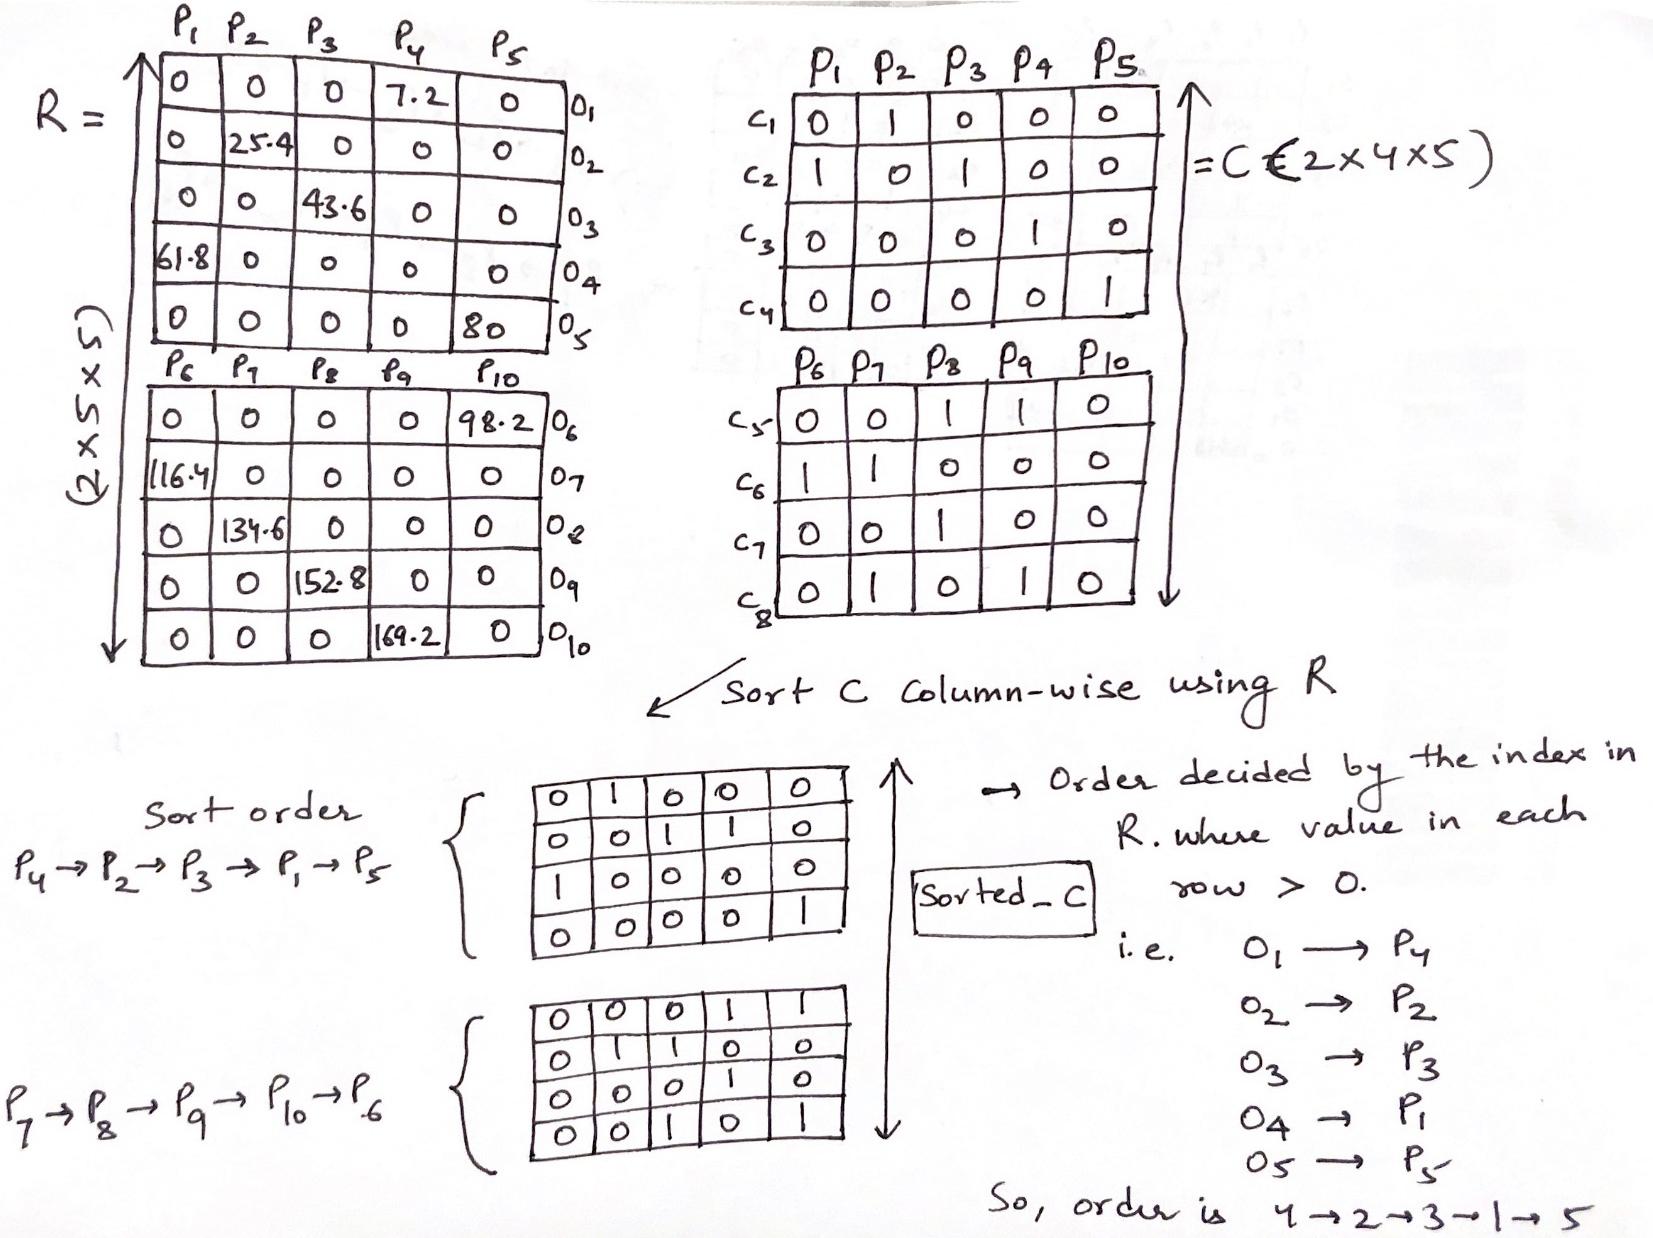 P1 P2 P3 P4 P5
R =
0 0 0 7.2 0 O1
0 25.4 0 0 0 O2
0 0 43.6 0 0 O3
61.8 0 0 0 0 O4
0 0 0 0 80 O5
P6 P7 P8 P9 P10
0 0 0 0 98.2 O6
116.4 0 0 0 0 O7
0 134.6 0 0 0 O8
0 0 152.8 0 0 O9
0 0 0 169.2 0 O10
(2 x 5 x 5)
P1 P2 P3 P4 P5
C1 0 1 0 0 0
C2 1 0 1 0 0
C3 0 0 0 1 0
C4 0 0 0 0 1
P6 P7 P8 P9 P10
C5 0 0 1 1 0
C6 1 1 0 0 0
C7 0 0 1 0 0
C8 0 1 0 1 0
= C (2x4x5)
Sort C Column-wise using R
Sort order
P4 → P2 → P3 → P1 → P5
0 1 0 0 0
0 0 1 1 0
1 0 0 0 0
0 0 0 0 1
P7 → P8 → P9 → P10 → P6
0 0 0 1 1
0 1 1 0 0
0 0 0 1 0
0 0 1 0 1
Sorted_C
→ Order decided by the index in
R. where value in each
row > 0.
i.e. O1 → P4
O2 → P2
O3 → P3
O4 → P1
O5 → P5
So, order is 4→2→3→1→5